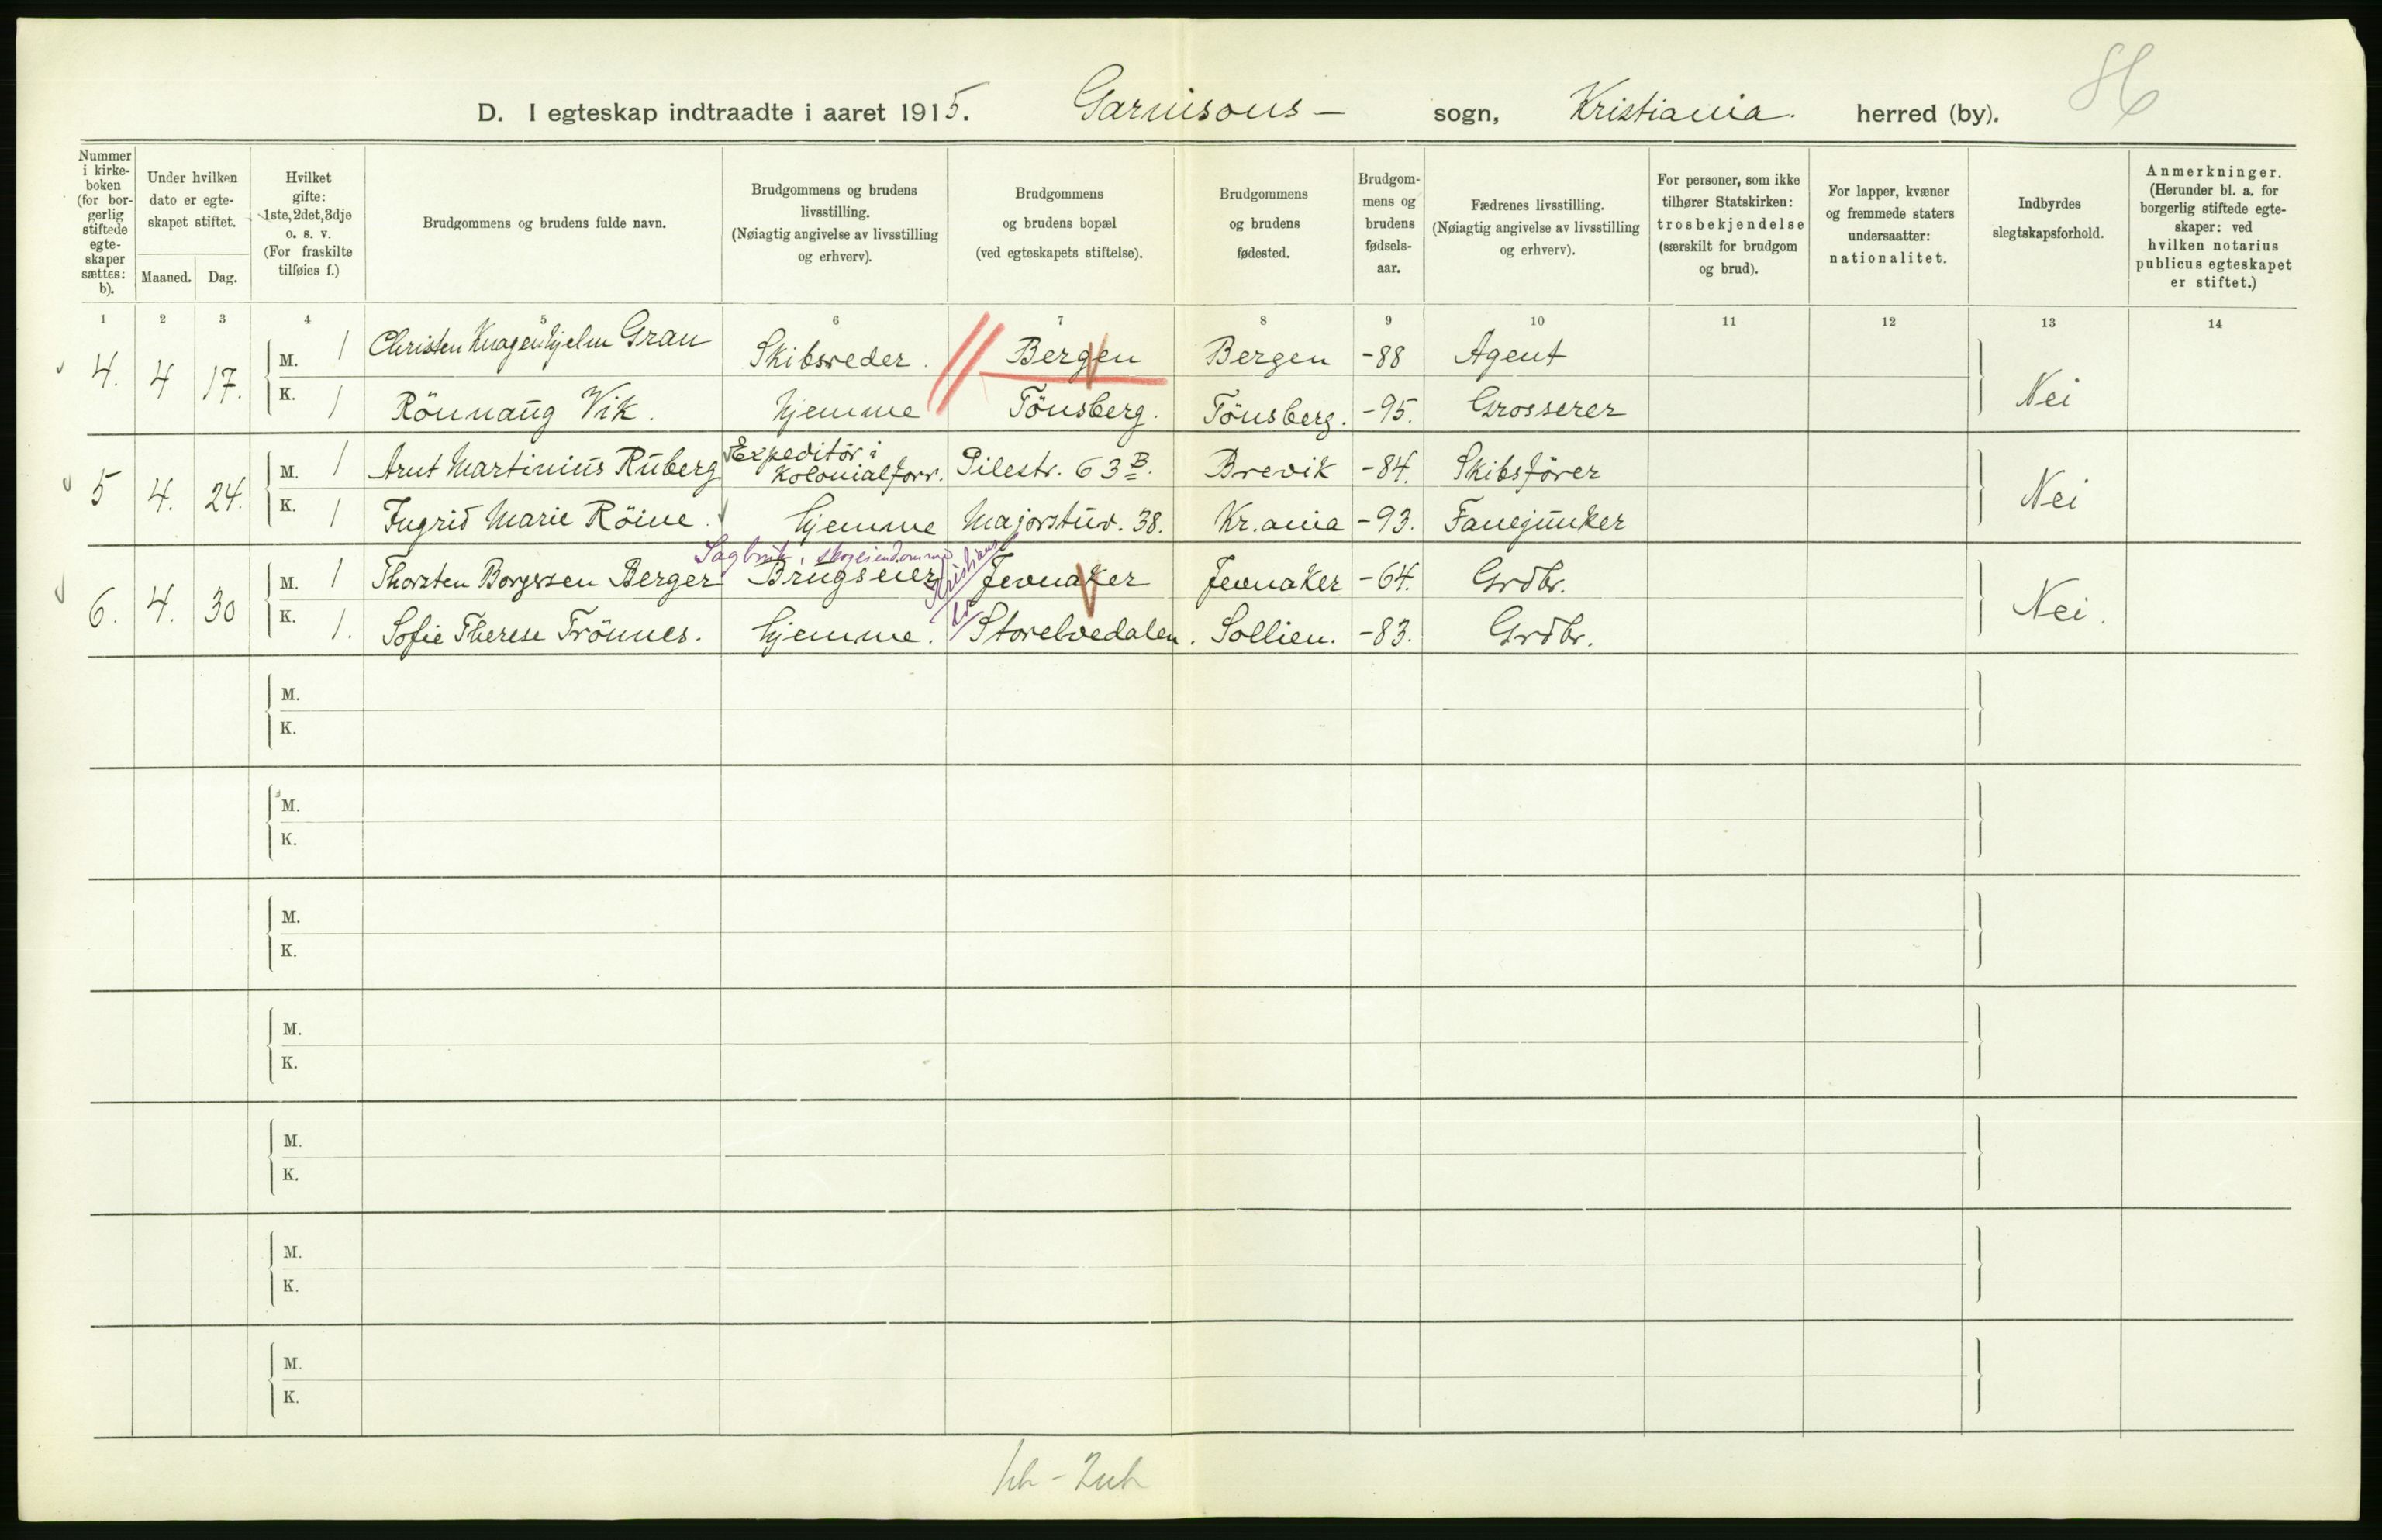 86
D. I egteskap indtraadte i aaret 1915. Garnisons- sogn, Kristiania. herred (by).
Nummer i kirkeboken (for borgerlig stiftede egteskaper sættes: b).
Under hvilken dato er egteskapet stiftet.
Maaned. Dag.
Hvilket gifte: 1ste, 2det, 3dje o. s. v. (For fraskilte tilføies f.)
Brudgommens og brudens fulde navn.
Brudgommens og brudens livsstilling. (Nøiagtig angivelse av livsstilling og erhverv).
Brudgommens og brudens bopæl (ved egteskapets stiftelse).
Brudgommens og brudens fødested.
Brudgommens og brudens fødselsaar.
Fædrenes livsstilling. (Nøiagtig angivelse av livsstilling og erhverv).
For personer, som ikke tilhører Statskirken: trosbekjendelse (særskilt for brudgom og brud).
For lapper, kvæner og fremmede staters undersaatter: nationalitet.
Indbyrdes slegtskapsforhold.
Anmerkninger. (Herunder bl. a. for borgerlig stiftede egteskaper: ved hvilken notarius publicus egteskapet er stiftet.)
1 2 3 4 5 6 7 8 9 10 11 12 13 14
4. 4 17. M. 1 Christen Knagenhjelm Gran Skibsreder. Bergen Bergen -88 Agent Nei
K. 1 Rönnaug Vik. hjemme Tönsberg. Tönsberg. -95. Grosserer
5 4. 24. M. 1 Arnt Martinius Ruberg Expeditör i Kolonialforr. Pilestr. 63 B. Brevik -84. Skibsförer Nei
K. 1 Ingrid Marie Röine. hjemme Majorstuv. 38. Kr.ania -93. Fanejunker
Sagbruk, skogeiendomme
6. 4. 30 M. 1 Thorsten Borgersen Berger Brugseier Kristians Jevnaker Jevnaker -64. Grdbr. Nei.
K. 1. Sofie Therese Trönnes. hjemme. Storelvedalen. Sollien. -83. Grdbr.
M.
K.
M.
K.
M.
K.
M.
K.
M.
K.
M.
K.
M.
K.